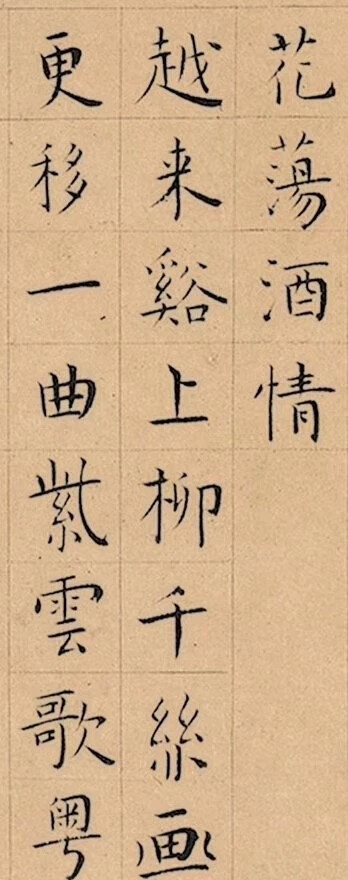 花蕩酒情
越来谿上柳千絲画
更移一曲紫雲歌粤